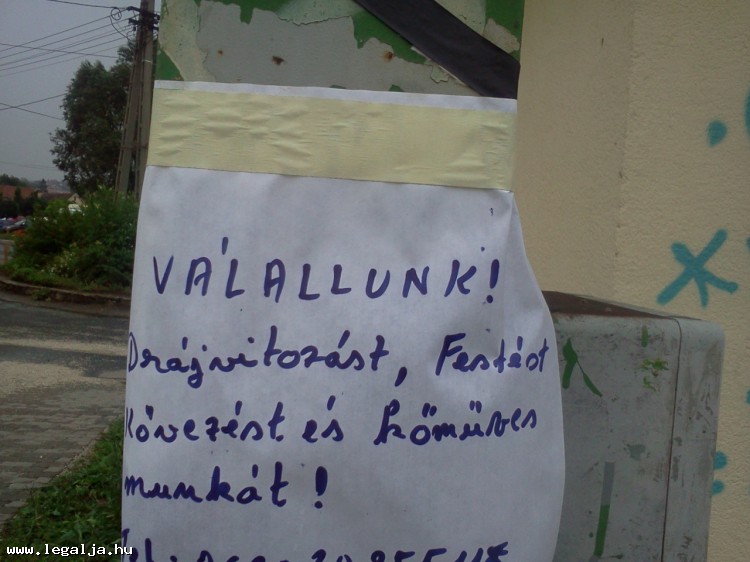 VÁLALLUNK!
Drájvitozást, Festést
Kövezést és kőmüves
munkát!
www.legalja.hu